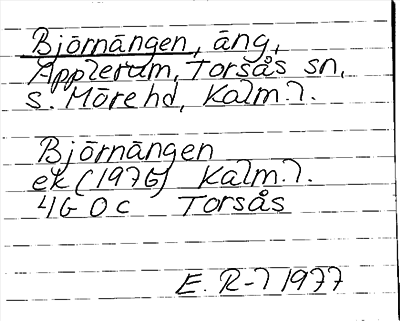 Björnängen, äng,
Applerum, Torsås sn,
S. Möre hd, Kalm. l.
Björnängen
ek (1976) Kalm. l.
4G 0c Torsås
E. R-l 1977